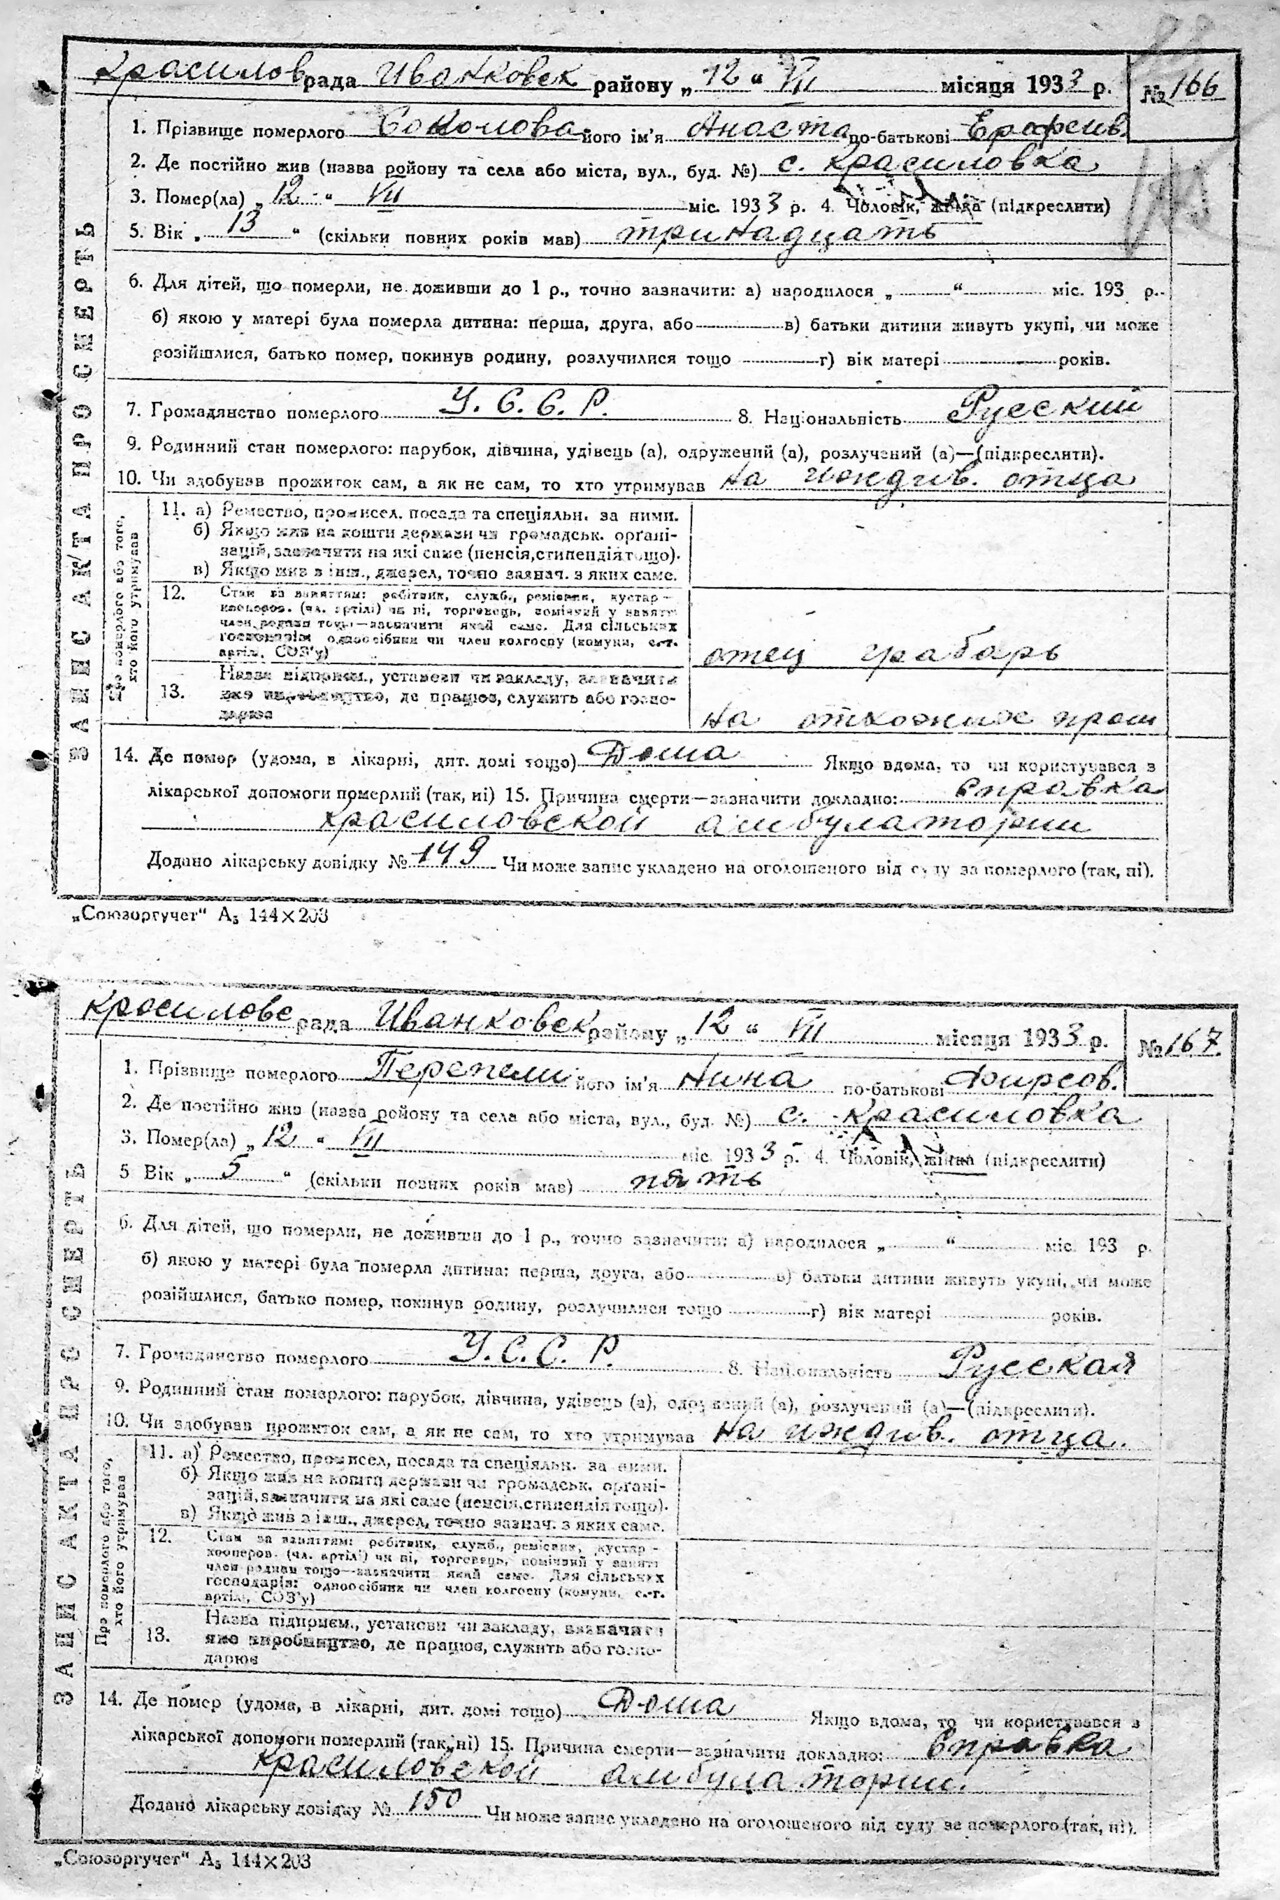 Красилов рада Иванковск району „12" VII місяця 1933 р. № 166
1. Прізвище померлого Соколова його ім'я Анаста по-батькові Ерофеив.
2. Де постійно жив (назва району та села або міста, вул., буд. №) с. Красиловка
3. Помер(ла) „12" VII міс. 1933 р. 4. Чоловік, жінка (підкреслити)
5. Вік „13" (скільки повних років мав) тринадцать
6. Для дітей, що померли, не доживши до 1 р., точно зазначити: а) народилося „ " міс. 193 р.
б) якою у матері була померла дитина: перша, друга, або в) батьки дитини живуть укупі, чи може
розійшлися, батько помер, покинув родину, розлучилися тощо г) вік матері років.
7. Громадянство померлого У.С.С.Р. 8. Національність Русский
9. Родинний стан померлого: парубок, дівчина, удівець (а), одружений (а), розлучений (а)—(підкреслити).
10. Чи здобував прожиток сам, а як не сам, то хто утримував на иждив. отца
ЗАПИС АКТА ПРО СМЕРТЬ
Про померлого або того, хто його утримував
11. а) Ремество, промисел, посада та спеціяльн. за ними.
б) Якщо жив на кошти держави чи громадськ. органі-
зацій, зазначити на які саме (пенсія, стипендія тощо).
в) Якщо жив з інш., джерел, точно зазнач. з яких саме.
12. Стан за заняттям: робітник, служб., ремісник, кустар-
кооперов. (чл. артілі) чи ні, торговець, помічний у занятт
член родини тощо—зазначити який саме. Для сільських
господарів: одноосібник чи член колгоспу (комуни, с.-г.
артіл, СОЗ'у) отец грабарь
Назва підприєм., установи чи закладу, зазначити
13. яке виробництво, де працює, служить або госпо-
дарює на отхожие пром
14. Де помер (удома, в лікарні, дит. домі тощо) Дома Якщо вдома, то чи користувався з
лікарської допомоги померлий (так, ні) 15. Причина смерти—зазначити докладно: справка
Красиловской амбулатории
Додано лікарську довідку № 149 Чи може запис укладено на оголошеного від суду за померлого (так, ні).
„Союзоргучет" А₅ 144×203
Красиловс рада Иванковск району „12" VII місяця 1933 р. № 167.
1. Прізвище померлого Перепели його ім'я Нина по-батькові Фирсов.
2. Де постійно жив (назва району та села або міста, вул., буд. №) с. Красиловка
3. Помер(ла) „12" VII міс. 1933 р. 4. Чоловік, жінка (підкреслити)
5 Вік „5" (скільки повних років мав) пять
6. Для дітей, що померли, не доживши до 1 р., точно зазначити: а) народилося „ " міс. 193 р.
б) якою у матері була померла дитина: перша, друга, або в) батьки дитини живуть укупі, чи може
розійшлися, батько помер, покинув родину, розлучилися тощо г) вік матері років.
7. Громадянство померлого У.С.С.Р. 8. Національність Русская
9. Родинний стан померлого: парубок, дівчина, удівець (а), одружений (а), розлучений (а)—(підкреслити).
10. Чи здобував прожиток сам, а як не сам, то хто утримував на иждив. отца.
ЗАПИС АКТА ПРО СМЕРТЬ
Про померлого або того, хто його утримував
11. а) Ремество, промисел, посада та спеціяльн. за ними.
б) Якщо жив на кошти держави чи громадськ. органі-
зацій, зазначити на які саме (пенсія, стипендія тощо).
в) Якщо жив з інш., джерел, точно зазнач. з яких саме.
12. Стан за заняттям: робітник, служб., ремісник, кустар-
кооперов. (чл. артілі) чи ні, торговець, помічний у занятт
член родини тощо—зазначити який саме. Для сільських
господарів: одноосібник чи член колгоспу (комуни, с.-г.
артіл, СОЗ'у)
Назва підприєм., установи чи закладу, зазначити
13. яке виробництво, де працює, служить або госпо-
дарює
14. Де помер (удома, в лікарні, дит. домі тощо) Дома Якщо вдома, то чи користувався з
лікарської допомоги померлий (так, ні) 15. Причина смерти—зазначити докладно: справка
Красиловской амбулатории.
Додано лікарську довідку № 150 Чи може запис укладено на оголошеного від суду за померлого (так, ні).
„Союзоргучет" А₅ 144×203